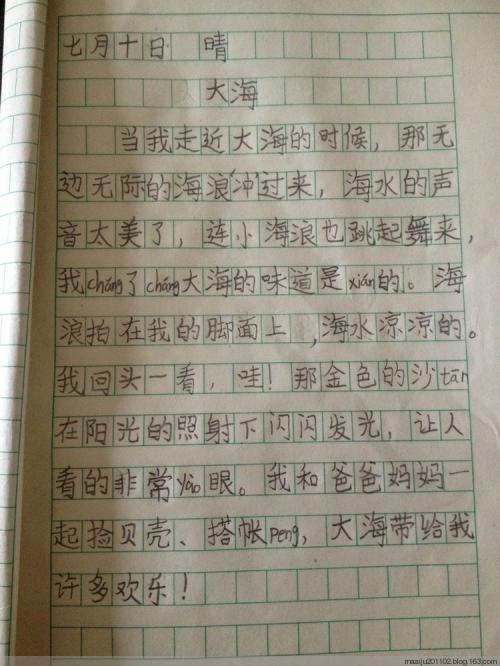 七月十日 晴
大海
当我走近大海的时候，那无
边无际的海浪冲过来，海水的声
音太美了，连小海浪也跳起舞来，
我cháng了cháng大海的味道是xián的。海
浪拍在我的脚面上，海水凉凉的。
我回头一看，哇！那金色的沙tān
在阳光的照射下闪闪发光，让人
看的非常yào眼。我和爸爸妈妈一
起捡贝壳、搭帐peng，大海带给我
许多欢乐！
maaiju201102.blog.163.com